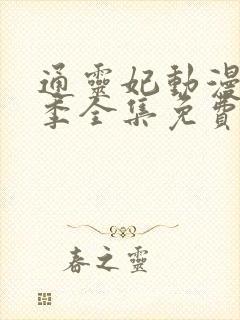 通靈妃動漫
季全集免費
春之靈